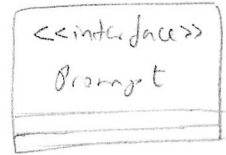 <<interface>>
Prompt